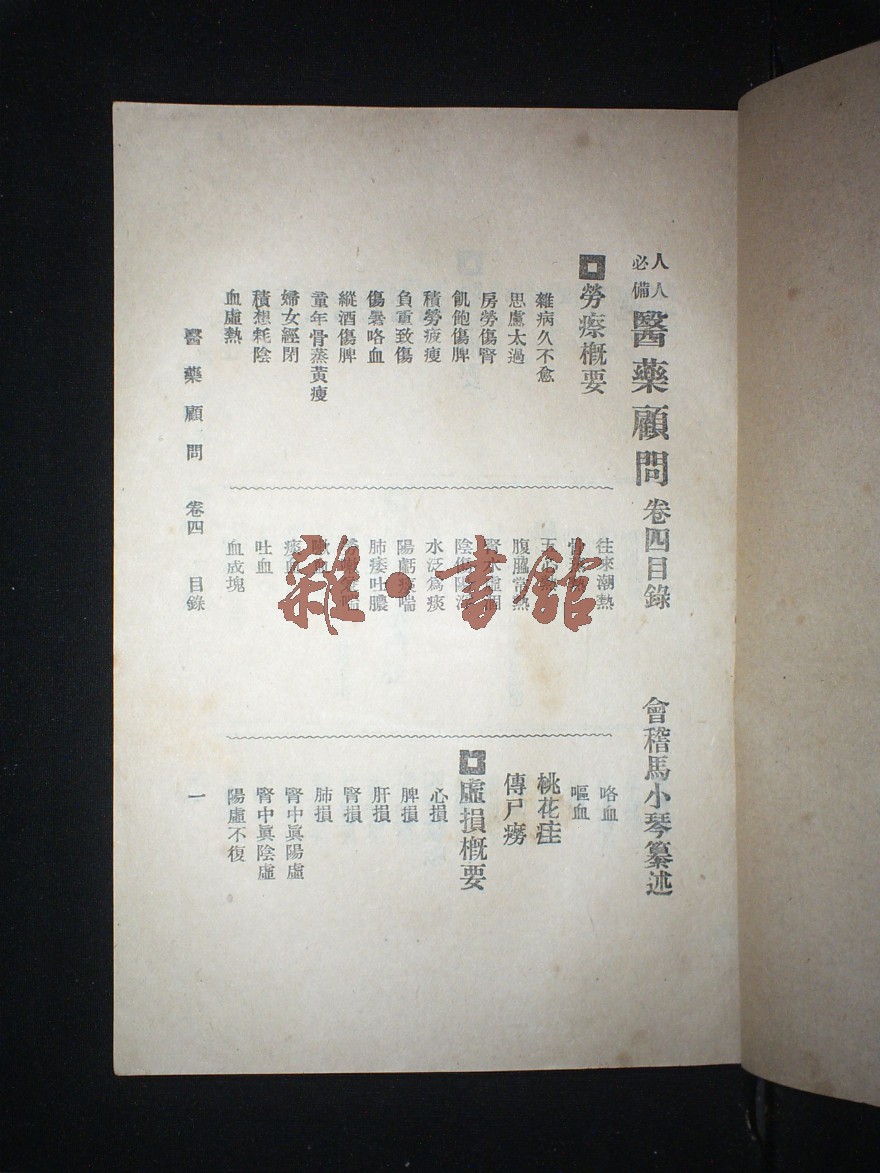 人人必備 醫藥顧問 卷四目錄 會稽馬小琴纂述
勞瘵概要
雜病久不愈
思慮太過
房勞傷腎
飢飽傷脾
積勞疲瘦
負重致傷
傷暑咯血
縱酒傷脾
童年骨蒸黃瘦
婦女經閉
積想耗陰
血虛熱
往來潮熱
腹脇常熱
水泛爲痰
陽虧痰喘
肺痿吐膿
吐血
血成塊
咯血
嘔血
桃花疰
傳尸癆
虛損概要
心損
脾損
肝損
腎損
肺損
腎中眞陽虛
腎中眞陰虛
陽虛不復
醫藥顧問 卷四 目錄 一
雜·書館